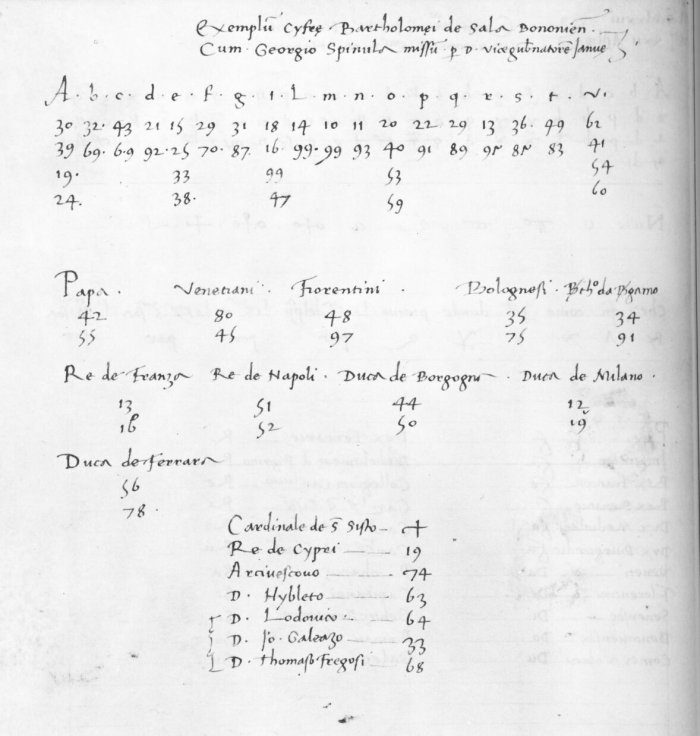 Exemplũ Cyfre Bartholomei de Sala Bononieñ.
Cum Georgio Spinula missũ p D. vicegub̃natorẽ Janue
A. b. c. d. e. f. g. i. L. m. n. o. p. q. r. s. t. v.
30 32. 43 21 15 29 31 18 14 10 11 20 22 29 13 36. 49 62
39 69. 69 92. 25 70. 87. 16. 99. 99 93 40 91 89 95 85 83 41
19. 33 99 53 54
24. 38. 47 59 60
Papa. Venetiani. Fiorentini. Bolognesi. Bthº. da Pgamo
42 80 48 35 34
55 45 97 75 91
Re de Franza Re de Napoli. Duca de Borgogni. Duca de Milano.
13 51 44 12
16 52 50 19
Duca de Ferrara
56
78.
Cardinale de S̃ Sisto +
Re de Cypri 19
Arcivescovo 74
D. Hybleto 63
D. Lodovico 64
D. Jo. Galeazo 33
D. Thomaso Fregosi 68